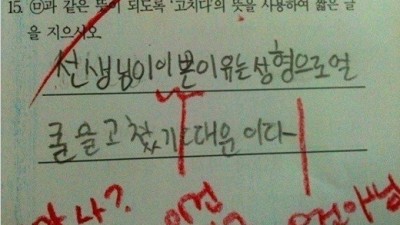 15. ㉤과 같은 뜻이 되도록 '고치다'의 뜻을 사용하여 짧은 글
을 지으시오
선생님이 이쁜이유는 성형으로 얼
굴을 고쳤기 때문 이다